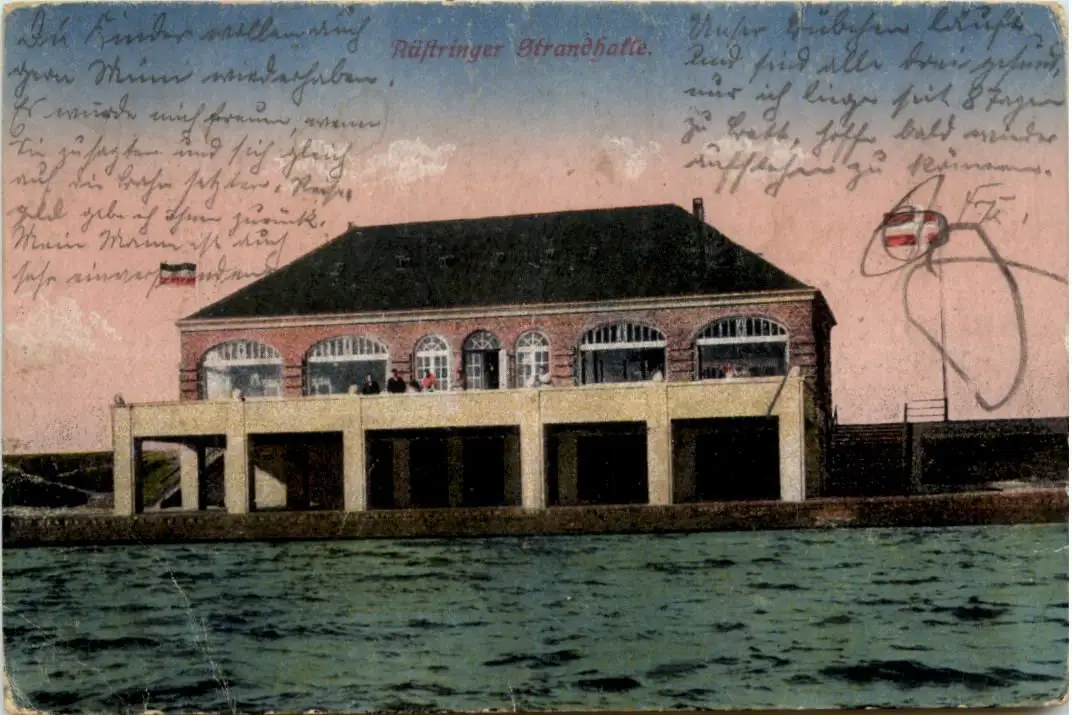 Rüstringer Strandhalle.
Die Kinder wollen auch
gern Mimi wiederhaben.
Es würde mich freuen, wenn
Sie zusagten und sich gleich
auf die Bahn setzten, Reise-
geld gebe ich Ihnen zurück.
Mein Mann ist auch
sehr einverstanden
Unser Bübchen läuft
und sind alle drei gesund,
nur ich liege seit 8 Tagen
zu Bett, hoffe bald wieder
aufstehen zu können.